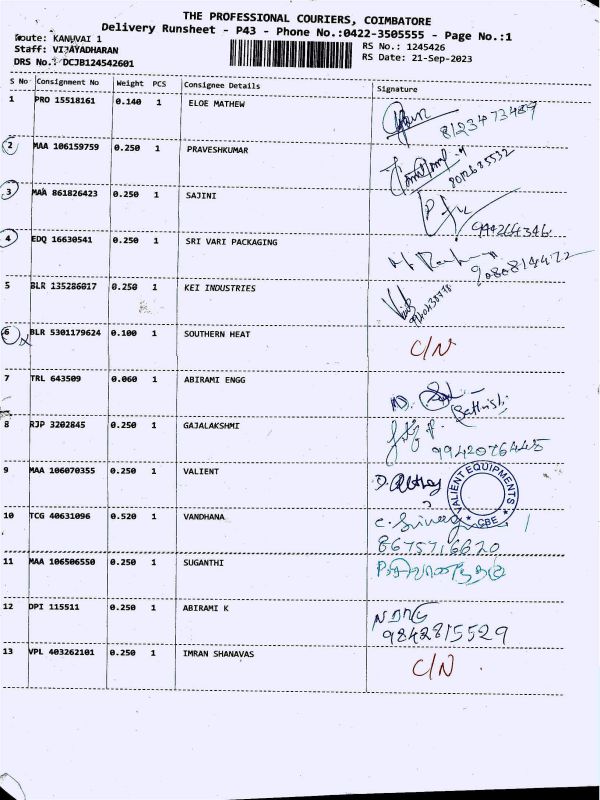 THE PROFESSIONAL COURIERS, COIMBATORE
Delivery Runsheet - P43 - Phone No.:0422-3505555 - Page No.:1
Route: KANUVAI 1
RS No.: 1245426
Staff: VIJAYADHARAN
RS Date: 21-Sep-2023
DRS No.: DCJB124542601
S No Consignment No Weight PCS Consignee Details Signature
1 PRO 15518161 0.140 1 ELOE MATHEW
8123473489
2 MAA 106159759 0.250 1 PRAVESHKUMAR
3 MAA 861826423 0.250 1 SAJINI
944264346
4 EDQ 16630541 0.250 1 SRI VARI PACKAGING
9080814472
5 BLR 135286017 0.250 1 KEI INDUSTRIES
6 BLR 5301179624 0.100 1 SOUTHERN HEAT C/N
7 TRL 643509 0.060 1 ABIRAMI ENGG
8 RJP 3202845 0.250 1 GAJALAKSHMI
9942076445
9 MAA 106070355 0.250 1 VALIENT
VALIENT EQUIPMENTS
CBE
10 TCG 40631096 0.520 1 VANDHANA
8675716620
11 MAA 106506550 0.250 1 SUGANTHI
12 DPI 115511 0.250 1 ABIRAMI K
9842815529
13 VPL 403262101 0.250 1 IMRAN SHANAVAS C/N